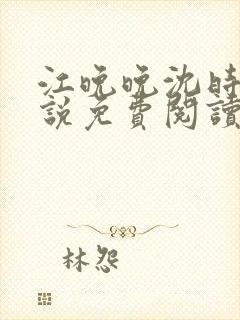 江晚晚沈時
說免費閱讀
林怨